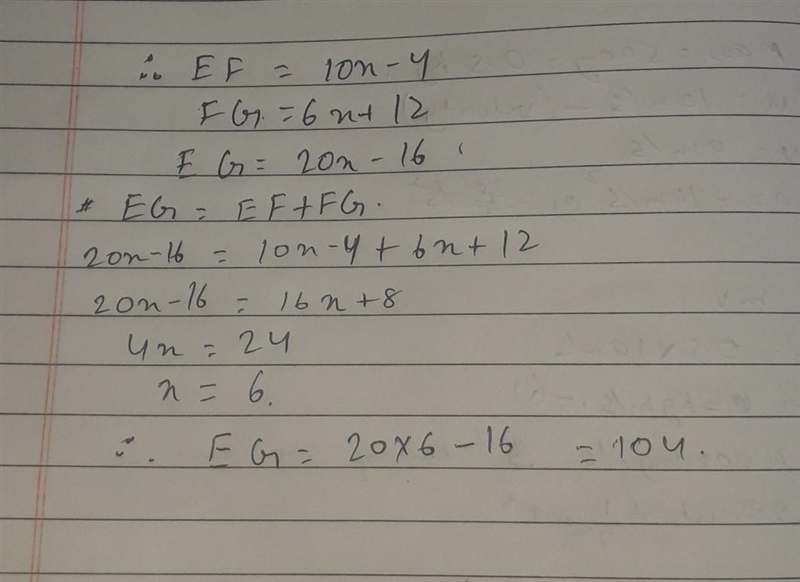 ∴ EF = 10x-4
FG = 6x+12
EG = 20x-16
* EG = EF+FG.
20x-16 = 10x-4+6x+12
20x-16 = 16x+8
4x = 24
x = 6.
∴ EG = 20×6-16 = 104.